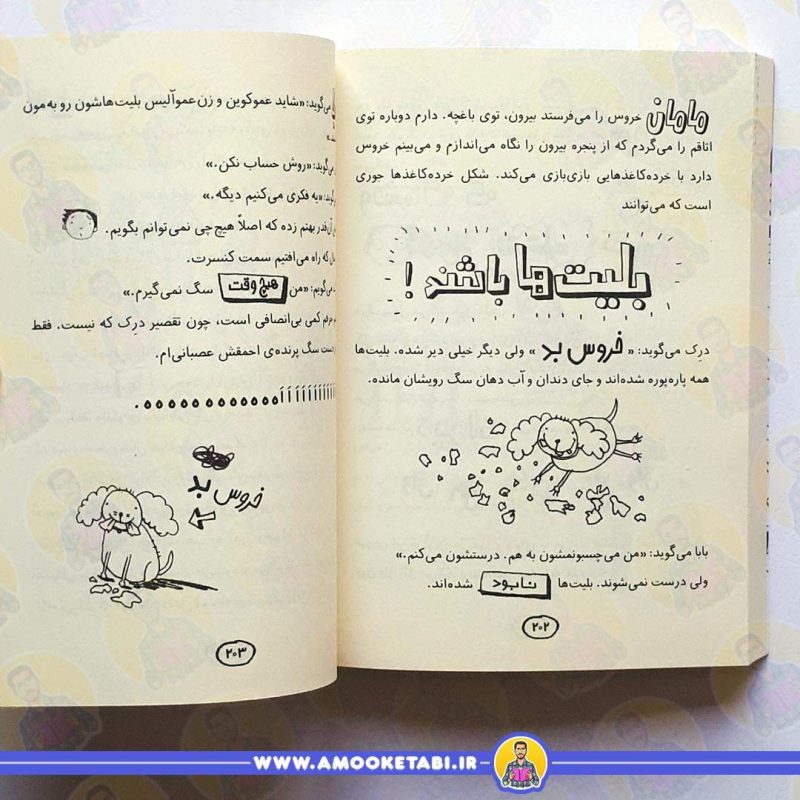 مامان خروس را می‌فرستد بیرون، توی باغچه. دارم دوباره توی
اتاقم را می‌گردم که از پنجره بیرون را نگاه می‌اندازم و می‌بینم خروس
دارد با خرده‌کاغذهایی بازی‌بازی می‌کند. شکل خرده‌کاغذها جوری
است که می‌توانند
بلیت‌ها باشند!
درِک می‌گوید: «خروس بد» ولی دیگر خیلی دیر شده. بلیت‌ها
همه پاره‌پوره شده‌اند و جای دندان و آب دهان سگ رویشان مانده.
بابا می‌گوید: «من می‌چسبونمشون به هم. درستشون می‌کنم.»
ولی درست نمی‌شوند. بلیت‌ها نابود شده‌اند.
۲۰۲
می‌گوید: «شاید عموکوین و زن‌عموآلیس بلیت‌هاشون رو به‌مون
می‌گوید: «روش حساب نکن.»
می‌گوید: «یه فکری می‌کنیم دیگه.»
آن‌قدر بهتم زده که اصلاً هیچ‌چی نمی‌توانم بگویم.
که راه می‌افتیم سمت کنسرت.
می‌گویم: «من هیچ وقت سگ نمی‌گیرم.»
حرفم کمی بی‌انصافی است، چون تقصیر درِک که نیست. فقط
دست سگ پرنده‌ی احمقش عصبانی‌ام.
خروس بد
۲۰۳
WWW.AMOOKETABI.IR